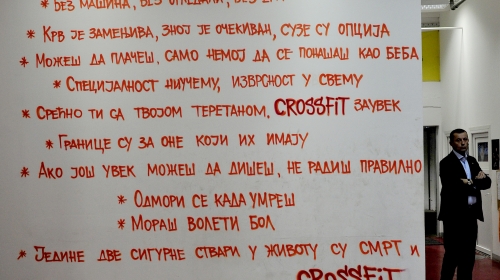 * БЕЗ МАШИНА, БЕЗ ОГЛЕДАЛА, БЕЗ
* КРВ ЈЕ ЗАМЕЊИВА, ЗНОЈ ЈЕ ОЧЕКИВАН, СУЗЕ СУ ОПЦИЈА
* МОЖЕШ ДА ПЛАЧЕШ, САМО НЕМОЈ ДА СЕ ПОНАШАШ КАО БЕБА
* СПЕЦИЈАЛНОСТ НИУЧЕМУ, ИЗВРСНОСТ У СВЕМУ
* СРЕЋНО ТИ СА ТВОЈОМ ТЕРЕТАНОМ, CROSSFIT ЗАУВЕК
* ГРАНИЦЕ СУ ЗА ОНЕ КОЈИ ИХ ИМАЈУ
* АКО ЈОШ УВЕК МОЖЕШ ДА ДИШЕШ, НЕ РАДИШ ПРАВИЛНО
* ОДМОРИ СЕ КАДА УМРЕШ
* МОРАШ ВОЛЕТИ БОЛ
* ЈЕДИНЕ ДВЕ СИГУРНЕ СТВАРИ У ЖИВОТУ СУ СМРТ И
CROSSFIT